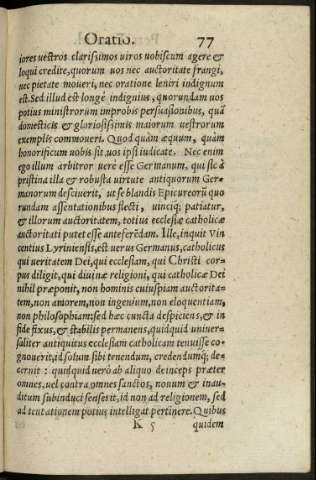 Oratio. 77
iores uestros clarissimos uiros uobiscum agere &
loqui credite, quorum uos nec auctoritate frangi,
nec pietate moueri, nec oratione leniri indignum
est. Sed illud est longè indignius, quorundam uos
potius ministrorum improbis persuasionibus, quā
domesticis & gloriosissimis maiorum uestrorum
exemplis commoueri. Quod quàm æquum, quàm
honorificum nobis sit, uos ipsi iudicate. Nec enim
ego illum arbitror uerè esse Germanum, qui sic à
pristina illa & robusta uirtute antiquorum Ger=
manorum desciuerit, ut se blandis Epicureorū quo
rundam assentationibus flecti, uinciq; patiatur,
& illorum auctoritatem, totius ecclesiæ catholicæ
auctoritati putet esse anteferēdam. Ille, inquit Vin
centius Lyriniensis, est uerus Germanus, catholicus
qui ueritatem Dei, qui ecclesiam, qui Christi cor=
pus diligit, qui diuinæ religioni, qui catholicæ Dei
nihil præponit, non hominis cuiuspiam auctorita=
tem, non amorem, non ingenium, non eloquentiam,
non philosophiam: sed hæc cuncta despiciens, & in
fide fixus, & stabilis permanens, quidquid uniuer=
saliter antiquitus ecclesiam catholicam tenuisse co=
gnouerit, id solum sibi tenendum, credendumq; de=
cernit: quidquid uerò ab aliquo deinceps præter
omnes, uel contra omnes sanctos, nouum & inau=
ditum subinduci senserit, id non ad religionem, sed
ad tentationem potius intelligat pertinere. Quibus
K 5 quidem